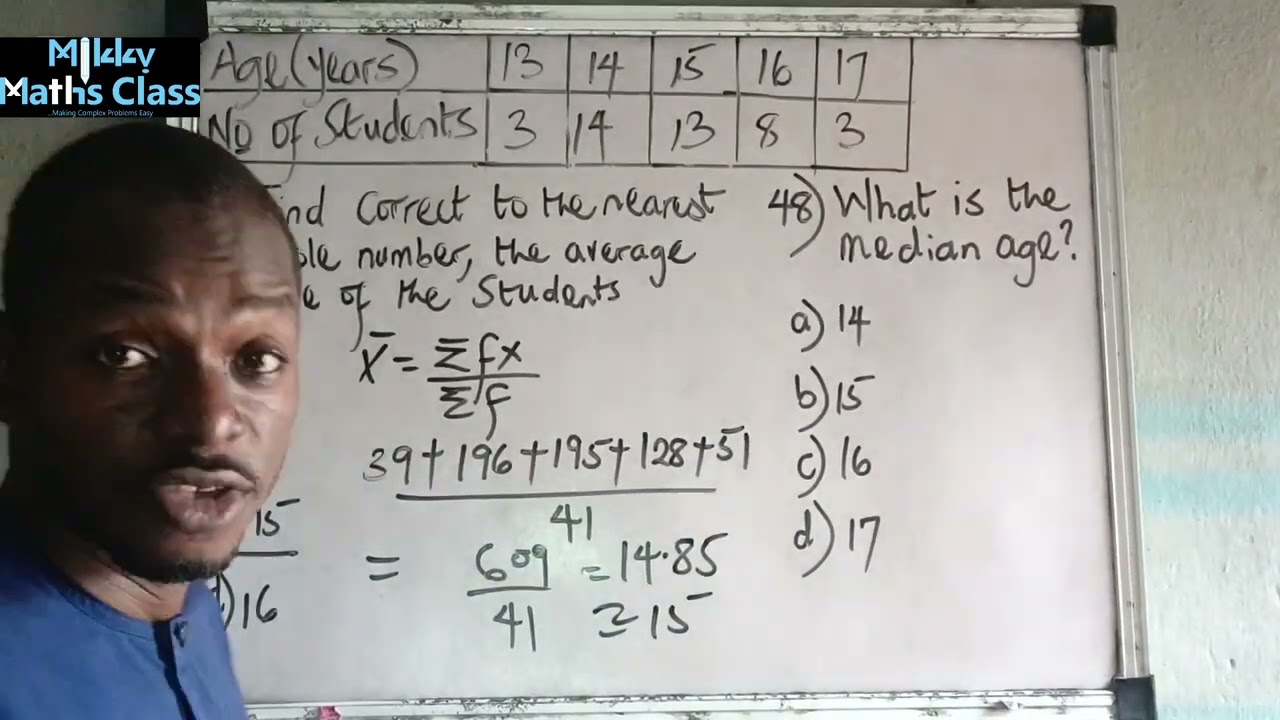 Mikky
Maths Class
...Making Complex Problems Easy
Age (years) 13 14 15 16 17
No of Students 3 14 13 8 3
nd correct to the nearest
ole number, the average
e of the Students
x̄ = Σfx
Σf
39+196+195+128+51
41
= 609 = 14.85
41 ≃ 15
15
d) 16
48) What is the
median age?
a) 14
b) 15
c) 16
d) 17